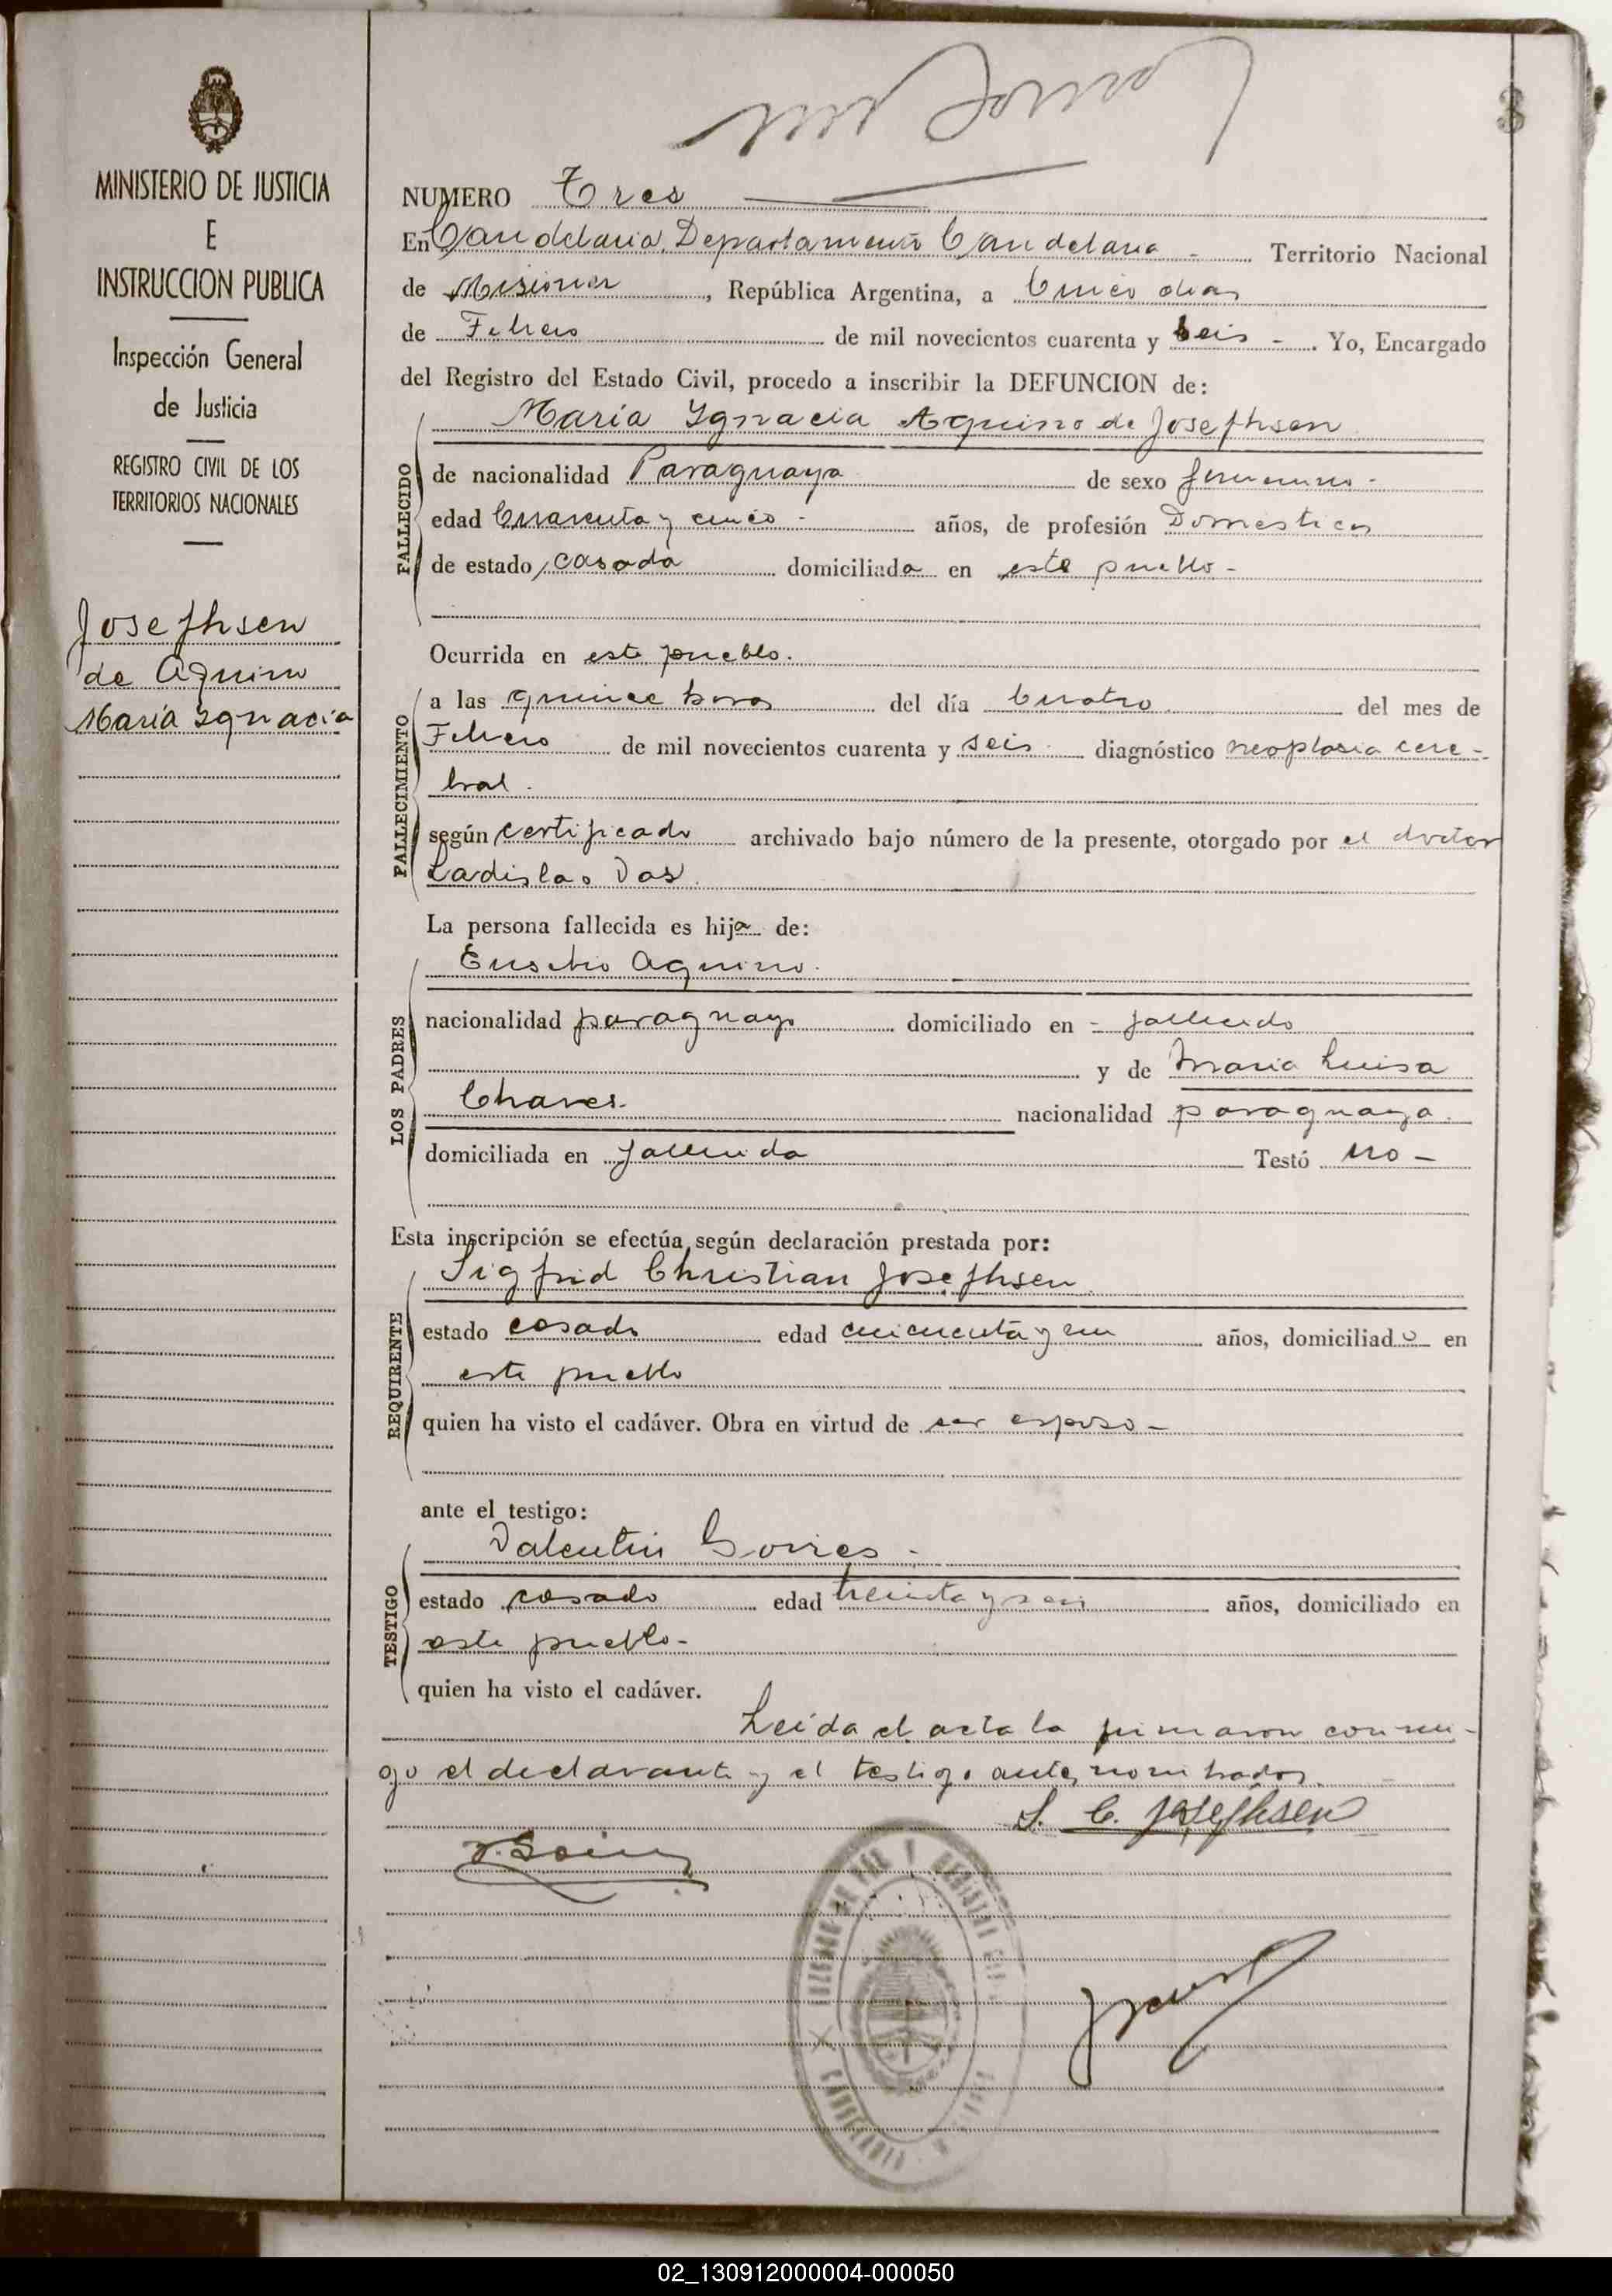 3
MINISTERIO DE JUSTICIA
E
INSTRUCCION PUBLICA
Inspección General
de Justicia
REGISTRO CIVIL DE LOS
TERRITORIOS NACIONALES
Josefhsen
de Aquino
María Ygnacia
NUMERO Tres
En Candelaria, Departamento Candelaria - Territorio Nacional
de Misiones, República Argentina, a Cinco dias
de Febrero de mil novecientos cuarenta y seis - . Yo, Encargado
del Registro del Estado Civil, procedo a inscribir la DEFUNCION de:
María Ygnacia Aquino de Josefhsen
FALLECIDO
de nacionalidad Paraguaya de sexo femenino -
edad Cuarenta y cinco - años, de profesión Domestica
de estado casada domiciliada en este pueblo -
Ocurrida en este pueblo.
FALLECIMIENTO
a las quince horas del día Cuatro del mes de
Febrero de mil novecientos cuarenta y seis diagnóstico neoplasia cere-
bral.
según certificado archivado bajo número de la presente, otorgado por el doctor
Ladislao
La persona fallecida es hija de:
LOS PADRES
Eusebio Aquino.
nacionalidad paraguayo domiciliado en - fallecido
y de Maria Luisa
Chaves. nacionalidad paraguaya.
domiciliada en fallecida Testó no -
Esta inscripción se efectúa según declaración prestada por:
REQUIRENTE
Sigfrid Christian Josefhsen
estado casado edad cincuenta y un años, domiciliado en
este pueblo
quien ha visto el cadáver. Obra en virtud de ser esposo -
ante el testigo:
TESTIGO
Valentin Goires -
estado casado edad treinta y seis años, domiciliado en
este pueblo -
quien ha visto el cadáver.
Leída el acta la firmaron conmi-
go el declarante y el testigo antes nombrados.
S. C. Josefhsen
02_130912000004-000050